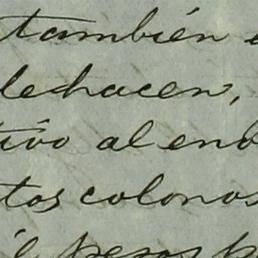 también
lehacen,
tivo al en
tos colonos
pesos p